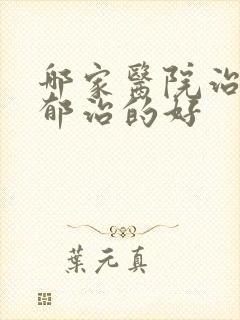 邮家醫院治
郁治的好
葉元真